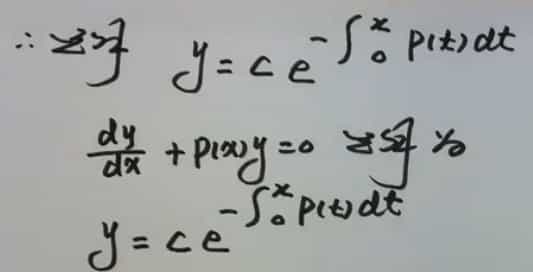 ∴ y = c e^{-∫_0^x p(t) dt}
dy/dx + p(x) y = 0
y = c e^{-∫_0^x p(t) dt}